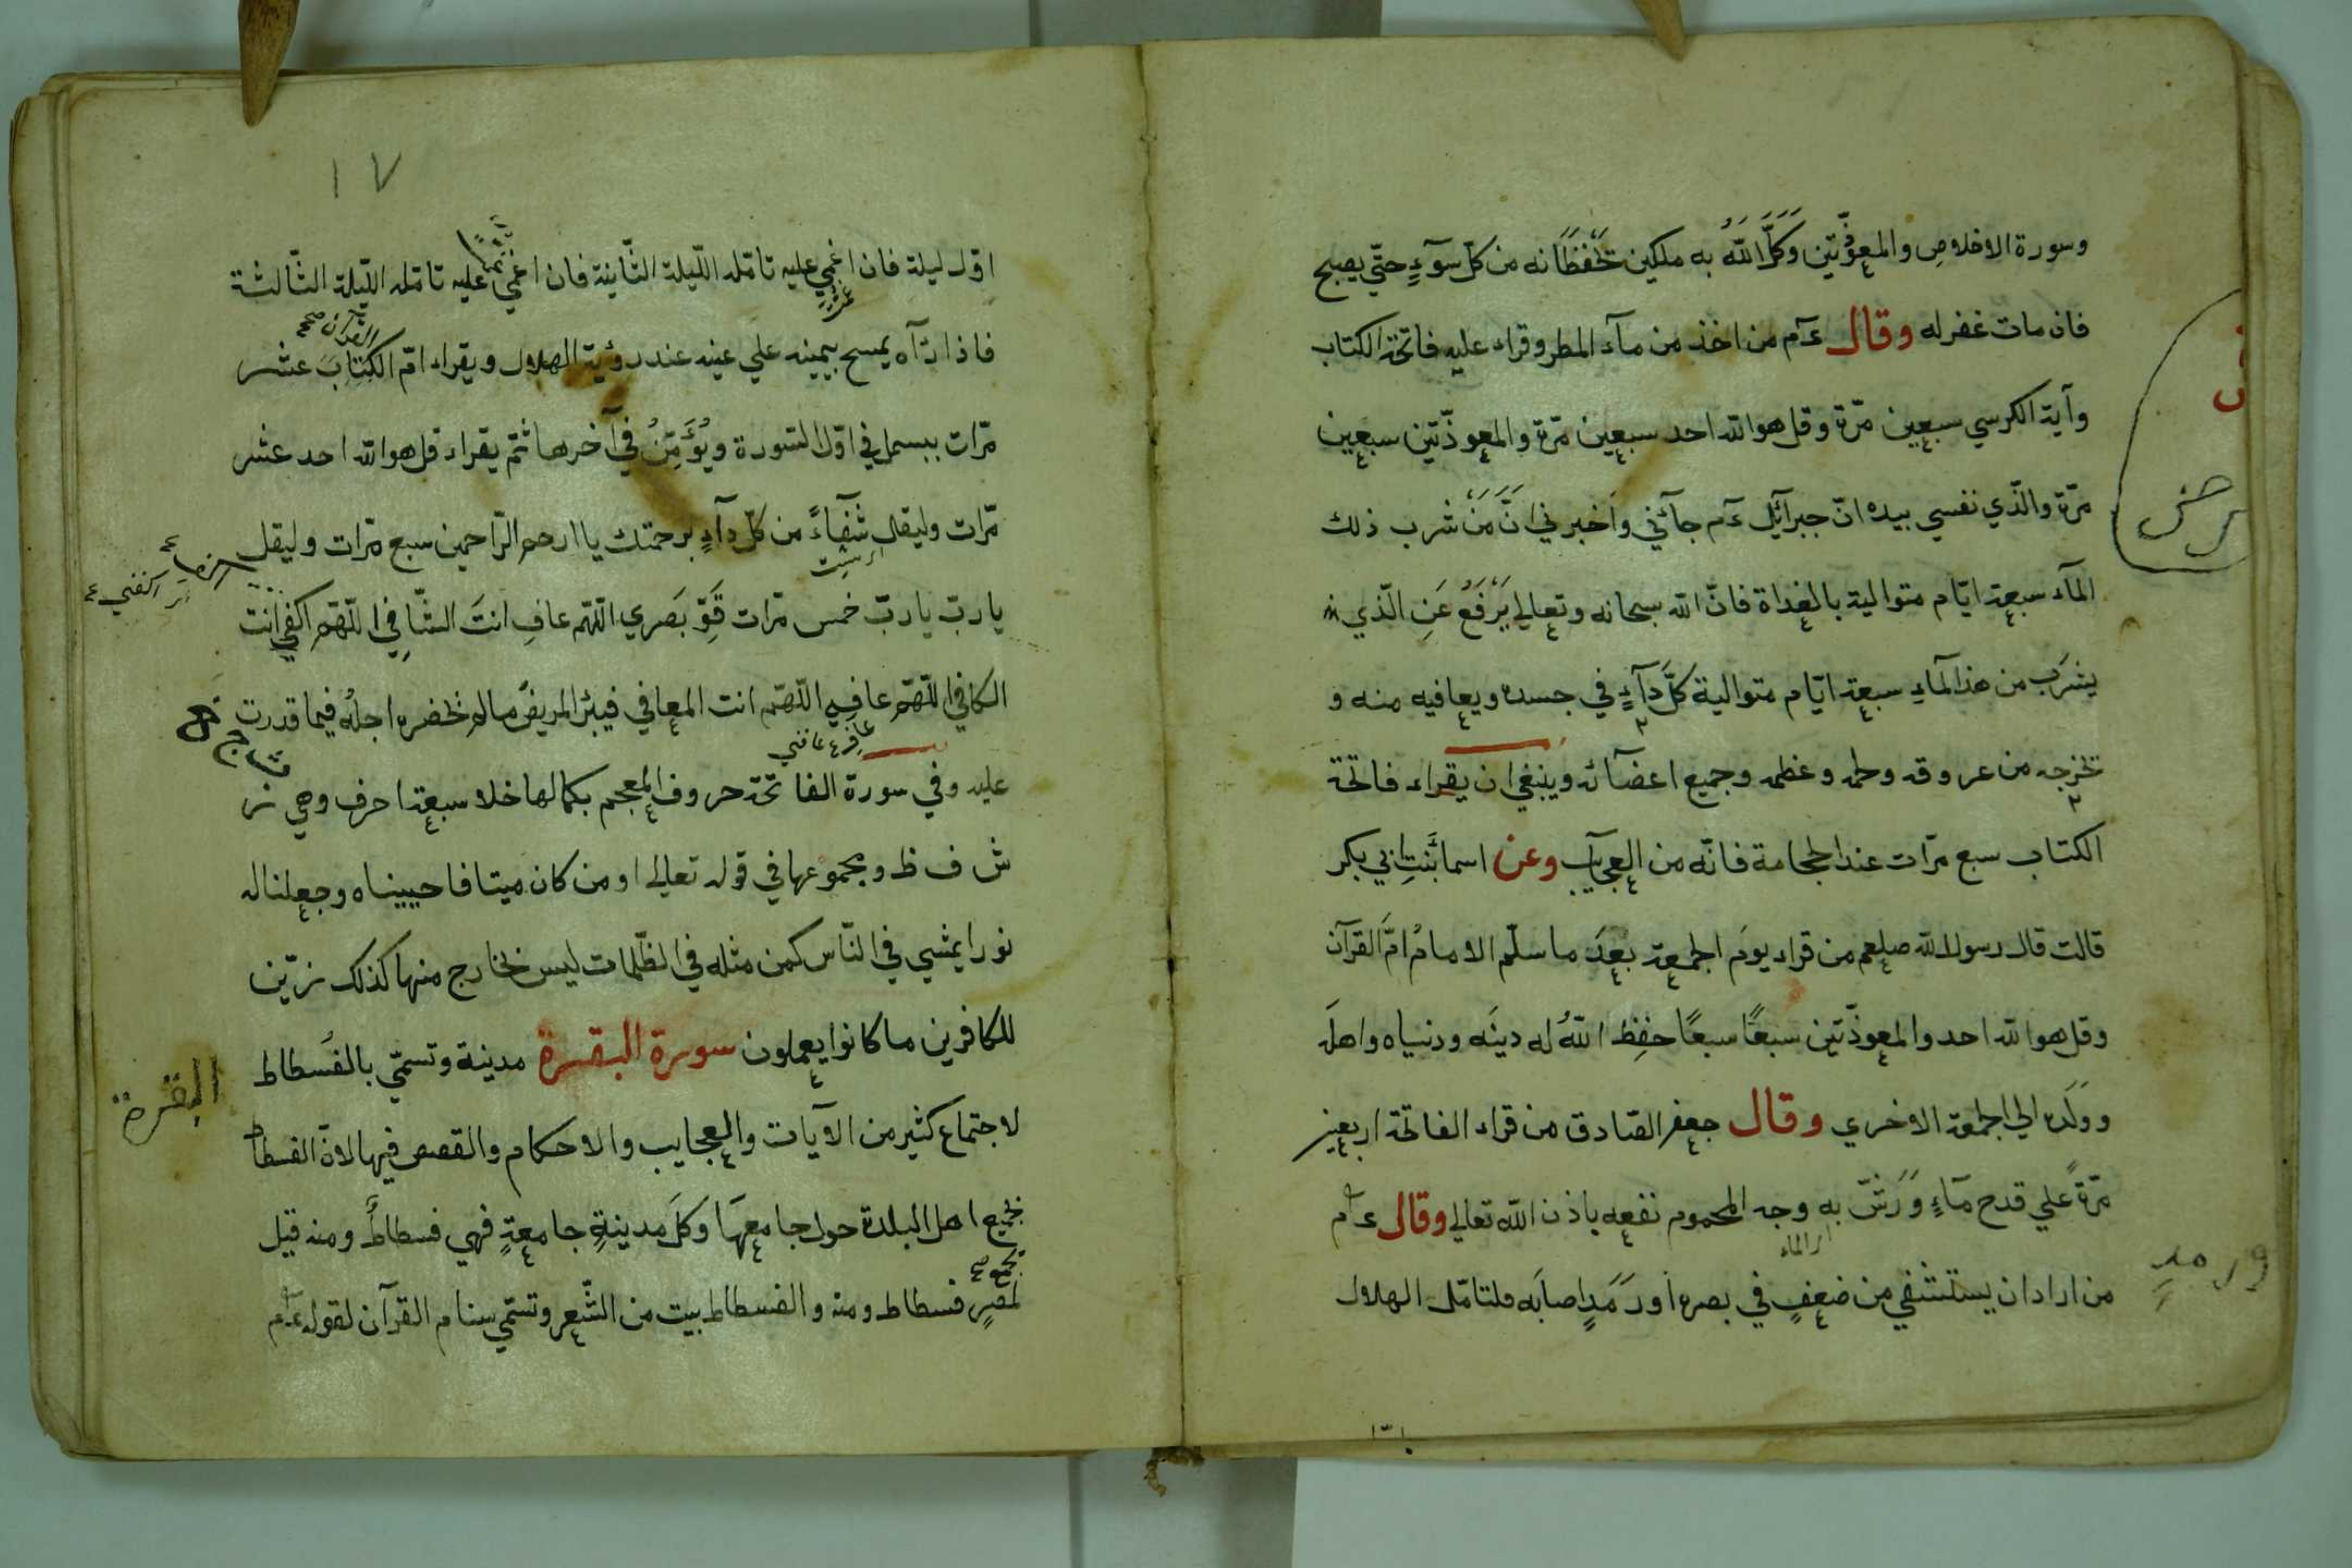 وسورة الاخلاص والمعوّذتين وَكَّلَ اللّٰهُ به ملكين تحْفظَانه من كلّ سوٓءٍ حتّي يصبح
فان مات غفر له وقال ءٓم من اخذ من مآء المطر وقراء عليه فاتحة الكتاب
وآية الكرسي سبعين مرّة وقل هو الله احد سبعين مرّة والمعوذّتين سبعين
مرّة والذّي نفسي بيده انّ جبرآئل ءٓم جآئني واَخبرني انَّ مَنْ شرب ذلك
المآء سبعة ايّام متوالية بالغداة فانّ الله سبحانه وتعالي يَرْفَعُ عَنِ الّذي
يشرَب من هذا لمآءِ سبعة ايّام متوالية كلَّ دآءٍ في جسده ويعافيه منه و
تخرجه من عروقه ولحمه وعظمه وجميع اعضآئه وينبغي ان يقراء فاتحة
الكتاب سبع مرّات عند الحجامة فانّه من العجآيب وعن اسما بَنتِ ابي بكر
قالت قال رسول الله صلعم من قراء يومَ الجمعة بعدَ ما سلّم الامامُ امَّ القرآن
وقل هو الله احد والمعوذّتين سبعًا سبعًا حفِظ اللّٰهُ له دينَه ودنياه واهلَه
وولَده الي الجمعة الاخري وقال جعفر الصّادق من قراء الفاتحة اربعين
مرّةً علي قدح مآءٍ وَرَشَّ به وجه المحموم نفعه باذن اللّٰه تعالي وقال ءٓم
اي الماء
من اراد ان يستشفي من ضعفٍ في بصره اَو رَمَدٍ اصابَه فليتامّل الهلال
١٧
اوّل ليلة فان اغمي عليه تامّله اللّيلة الثّانية فان اغمي عليه تامّله اللّيلة الثّالثة
القرآن صح
فاذا رآه يمسح بيمينه علي عينه عند رؤية الهلال ويقراء امّ الكتابَ عشر
مرّات يبسمل في اوّل السّورة ويُؤَمِّنُ في آخرها ثمّ يقراء قل هو الله احد عشر
مرّات وليقل شفآءً من كلّ دآءٍ برحمتك يا ارحم الرّاحمين سبع مرّات وليقل
اكفني
يا ربّ يا ربّ خمس مرّات قَوِّ بَصَري اللّهّم عافِ انتَ الشّافِي اللّهّم اكفِ انت
الكافي اللّهّم عافِ اللّهّم انت المعافي فيبرٔ المريضُ ما لم تخضره اجلُه فيما قدرت
عافني
عليه وفي سورة الفاتحة حروف المعجم بكمالها خلا سبعة احرف وهي
ث ج خ ز
ش ف ظ ومجموعها في قوله تعالي او من كان ميتا فاحييناه وجعلنا له
نورا يمشي في النّاس كمن مثله في الظّلمات ليس بخارج منها كذلك زيّن
للكافرين ما كانوا يعملون سورة البقرة مدينة وتسمّي بالفُسطاط
البقرة
لاجتماع كثير من الآيات والعجايب والاحكام والقصص فيها لانّ الفسطاط
تجمع اهل البلدة حول جامعهَا وكل مدينةٍ جامعةٍ فهي فسطاطٌ ومنه قيل
تجمع
لمصرٍ فسطاط ومنه والفسطاط بيت من الشّعر وتسمّي سنام القرآن لقوله ءٓم